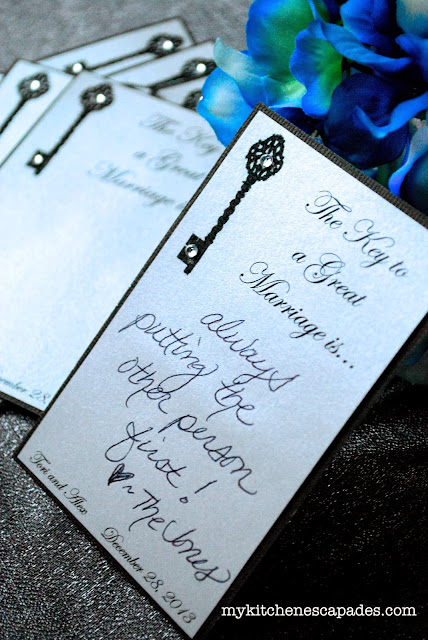 The Key to
a Great
Marriage is...
always
putting the
other person
first!
♥~ The Jones
Tori and Alex
December 28, 2013
The Key to
a Great
Marriage is
December 28,
mykitchenescapades.com